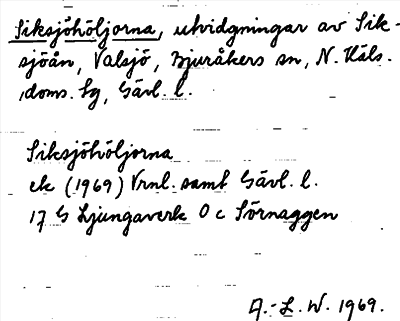 Siksjöhöljorna, utvidgningar av Sik-
sjöån, Valsjö, Bjuråkers sn, N. Häls.
doms. tg, Gävl. l.
Siksjöhöljorna
ek (1969) Vrnl. samt Gävl. l.
17 G Ljungaverk O c Sörnaggen
A.-L. W. 1969.